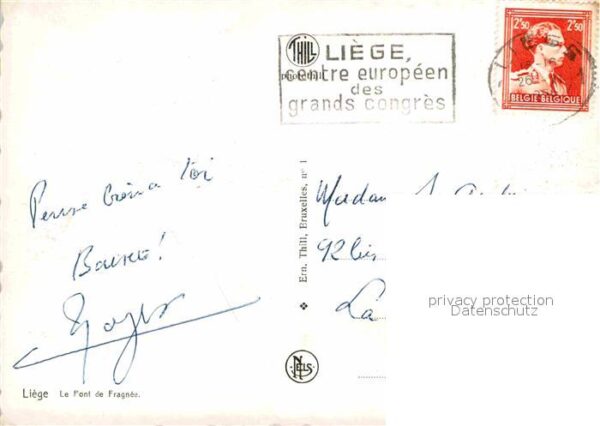 THILL
LIÈGE,
photothill
centre européen
des
grands congrès
2F50 2F50
BELGIE BELGIQUE
LIÈGE
26
Pense bien à toi
Baiser!
Roger
Ern. Thill, Bruxelles, nº 1
Madame
92bis
La
privacy protection
Datenschutz
NELS
Liège Le Pont de Fragnée.